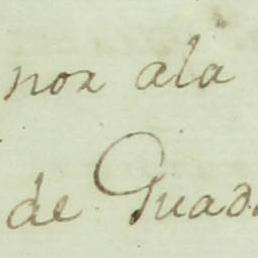 nor ala
de Guad